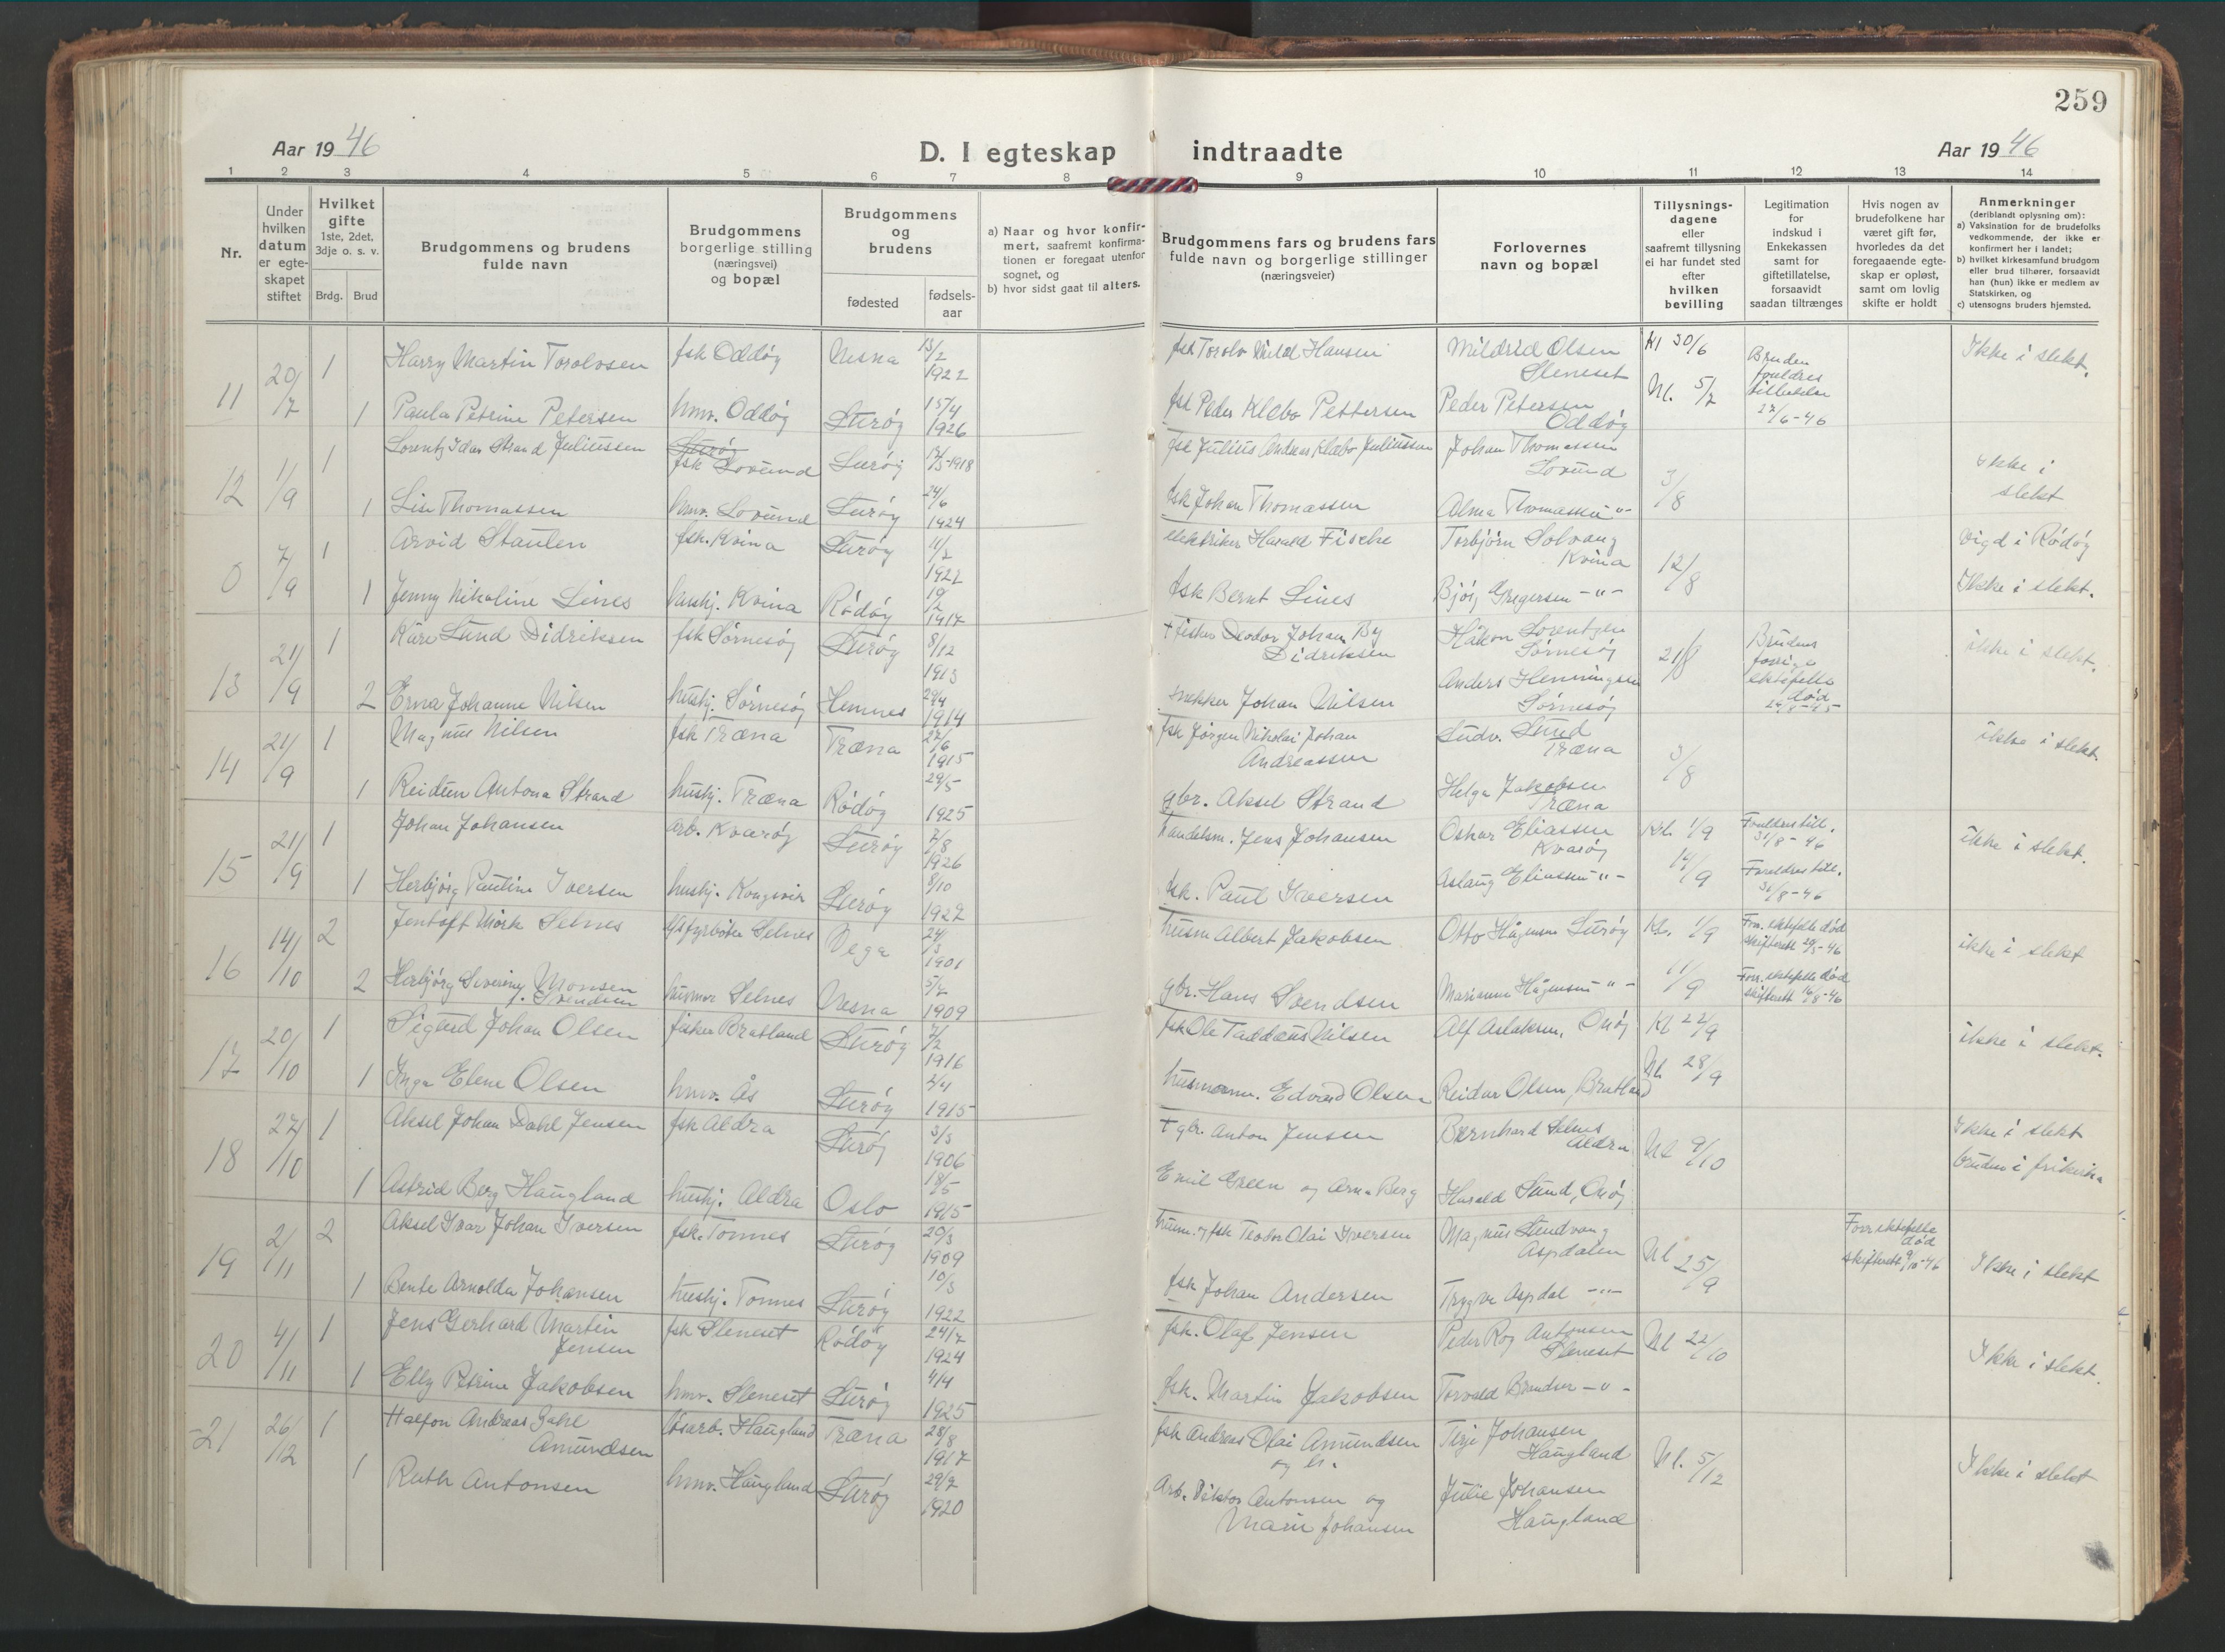 259
Aar 1946
D. I egteskap indtraadte
Aar 1946
1 2 3 4 5 6 7 8 9 10 11 12 13 14
Nr.
Under hvilken datum er egteskapet stiftet
Hvilket gifte 1ste, 2det, 3dje o. s. v.
Brdg. Brud
Brudgommens og brudens fulde navn
Brudgommens borgerlige stilling (næringsvei) og bopæl
Brudgommens og brudens
fødested
fødsels-aar
a) Naar og hvor konfirmert, saafremt konfirmationen er foregaat utenfor sognet, og
b) hvor sidst gaat til alters.
Brudgommens fars og brudens fars fulde navn og borgerlige stillinger (næringsveier)
Forlovernes navn og bopæl
Tillysningsdagene eller saafremt tillysning ei har fundet sted efter hvilken bevilling
Legitimation for indskud i Enkekassen samt for giftetillatelse, forsaavidt saadan tiltrænges
Hvis nogen av brudefolkene har været gift før, hvorledes da det foregaaende egteskap er opløst, samt om lovlig skifte er holdt
Anmerkninger (deriblandt oplysning om):
a) Vaksination for de brudefolks vedkommende, der ikke er konfirmert her i landet;
b) hvilket kirkesamfund brudgom eller brud tilhører, forsaavidt han (hun) ikke er medlem av Statskirken, og
c) utensogns bruders hjemsted.
11 20/7 1 Harry Martin Torolvsen fsk Oddøy Nesna 13/2 1922 fsk Torolv Hansen Mildrid Olsen Sleneset Kl 30/6 Ikke i slekt.
1 Paula Petrine Petersen hmv. Oddøy Lurøy 15/4 1926 fsk Peder Klæbo Pettersen Peder Petersen Oddøy Nl. 5/7 27/6-46
12 1/9 1 Lorentz Idar Strand Juliussen fsk Lovund Lurøy 1918 fsk Julius Andreas Klæbo Juliussen Johan Thomassen Lovund 3/8 ikke i slekt
1 Lise Thomassen hmv. Lovund Lurøy 24/6 1924 fsk Johan Thomassen Alma Thomassen -"-
0 7/9 1 Arvid Staulen fsk. Kvina Lurøy 11/2 1922 elektriker Harald Fische Torbjørn Solvang Kvina 12/8 vigd i Rødøy
1 Jenny Nikoline Lines hushj. Kvina Rødøy 19/2 1917 fsk Bernt Lines Bjørg Gregersen -"- Ikke i slekt.
13 21/9 1 Kåre Lund Didriksen fsk Sørnesøy Lurøy 8/12 1913 fisker Deodor Johan By Didriksen Håkon Lorentzen Sørnesøy 21/8 Brudens forrige ektefelle død ikke i slekt.
2 Erna Johanne Nilsen hushj. Sørnesøy Hemnes 29/4 1914 snekker Johan Nilsen Anders Henningsen Sørnesøy
14 21/9 1 Magnus Nilsen fsk Træna Træna 27/6 1915 fsk Jørgen Nikolai Johan Andreassen Ludv. Lund Træna 3/8 ikke i slekt.
1 Reidun Antona Strand hushj. Træna Rødøy 29/5 1925 gbr. Aksel Strand Helga Jakobsen Træna
15 21/9 1 Johan Johansen arb. Kvarøy Lurøy 2/8 1926 handelsm. Jens Johansen Oskar Eliassen Kvarøy Kl. 1/9 Foreldres till. 31/8-46 ikke i slekt.
1 Herbjørg Pauline Iversen hushj. Kongsvir Lurøy 8/10 1927 fsk. Paul Iversen Aslaug Eliassen -"- 14/9 Foreldres till. 31/8-46
16 14/10 2 Jentoft Mørk Selnes Selnes Vega 24/3 1901 husm Albert Jakobsen Otto Hågensen Lurøy Kl. 1/9 Forr. ektefelle død ikke i slekt
2 Herbjørg Severine Monsen f. Svendsen husmor Selnes Nesna 5/7 1909 gbr. Hans Svendsen Marianne Hågensen -"- 11/9 Forr. ektefelle død skifterett 16/8-46
17 20/10 1 Sigurd Johan Olsen fisker Bratland Lurøy 7/2 1916 fsk Ole Taddæus Nilsen Alf Aslaksen, Onøy Kl 22/9 ikke i slekt.
1 Inga Elene Olsen hmv. Ås Lurøy 2/4 1915 husmann. Edvard Olsen Reidar Olsen, Bratland Nl. 28/9
18 27/10 1 Aksel Johan Dahl Jensen fsk Aldra Lurøy 3/3 1906 gbr. Anton Jensen Bernhard Selnes Aldra Nl 9/10 Ikke i slekt
1 Astrid Berg Haugland hushj. Aldra Oslo 18/5 1915 Emil Green og Arna Berg Harald Lund, Onøy bruden i frikirka
19 2/11 2 Aksel Ivar Johan Iversen fsk. Tonnes Lurøy 20/3 1909 husm. og fsk Teodor Olai Iversen Magnus Lundvang Aspdalen Nl 25/9 Forr. ektefelle død skifterett 9/10-46 Ikke i slekt
1 Bente Arnolda Johansen hushj. Tonnes Lurøy 10/3 1922 fsk Johan Andersen Trygve Aspdal -"-
20 4/11 1 Jens Gerhard Martin Jensen fsk Sleneset Rødøy 24/7 1924 fsk. Olaf Jensen Peder Roy Antonsen Sleneset Nl 22/10 Ikke i slekt.
1 Elly Petrine Jakobsen hmv. Sleneset Lurøy 4/4 1925 fsk. Martin Jakobsen Torvald Brandser -"-
21 26/12 1 Halfon Andreas Dahl Amundsen løsarb. Haugland Træna 28/8 1917 fsk Andreas Olai Amundsen og h. Terje Johansen Haugland Nl. 5/12 Ikke i slekt
1 Ruth Antonsen hmv. Haugland Lurøy 29/7 1920 Arb. Viktor Antonsen og Marie Johansen Julie Johansen Haugland